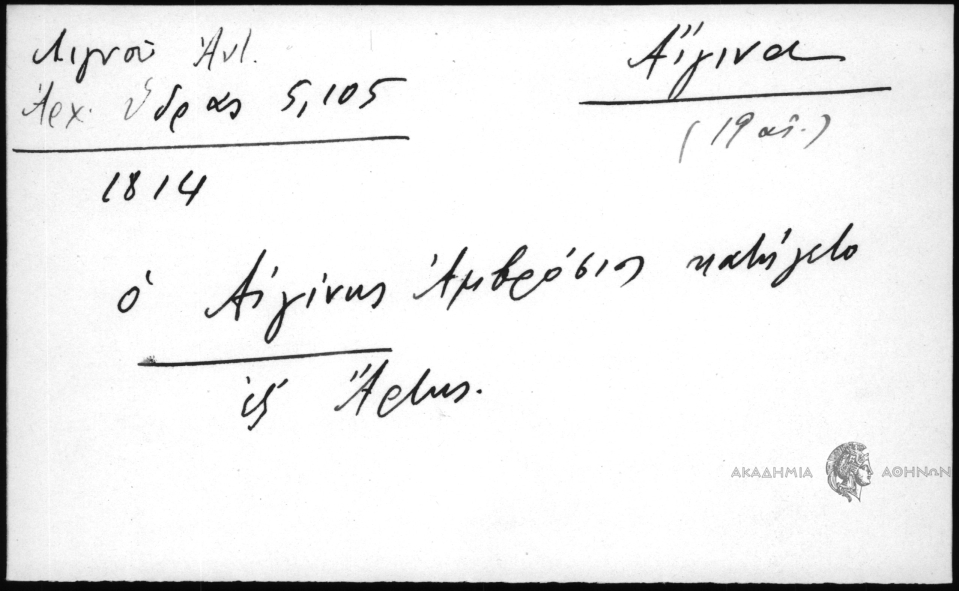 Λιγνού Ἀντ.
Ἀρχ. Ὕδρας 5,105
Αἴγινα
(19 αἰ.)
1814
ὁ Αἰγίνης Ἀμβρόσιος κατήγετο
ἐξ Ἄρτης.
ΑΚΑΔΗΜΙΑ ΑΘΗΝΩΝ